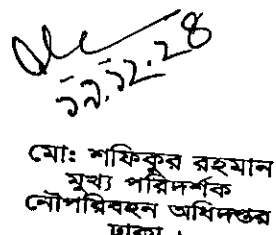 ১৯.১২.২৪
মো: শফিকুর রহমান
মুখ্য পরিদর্শক
নৌপরিবহন অধিদপ্তর
ঢাকা।